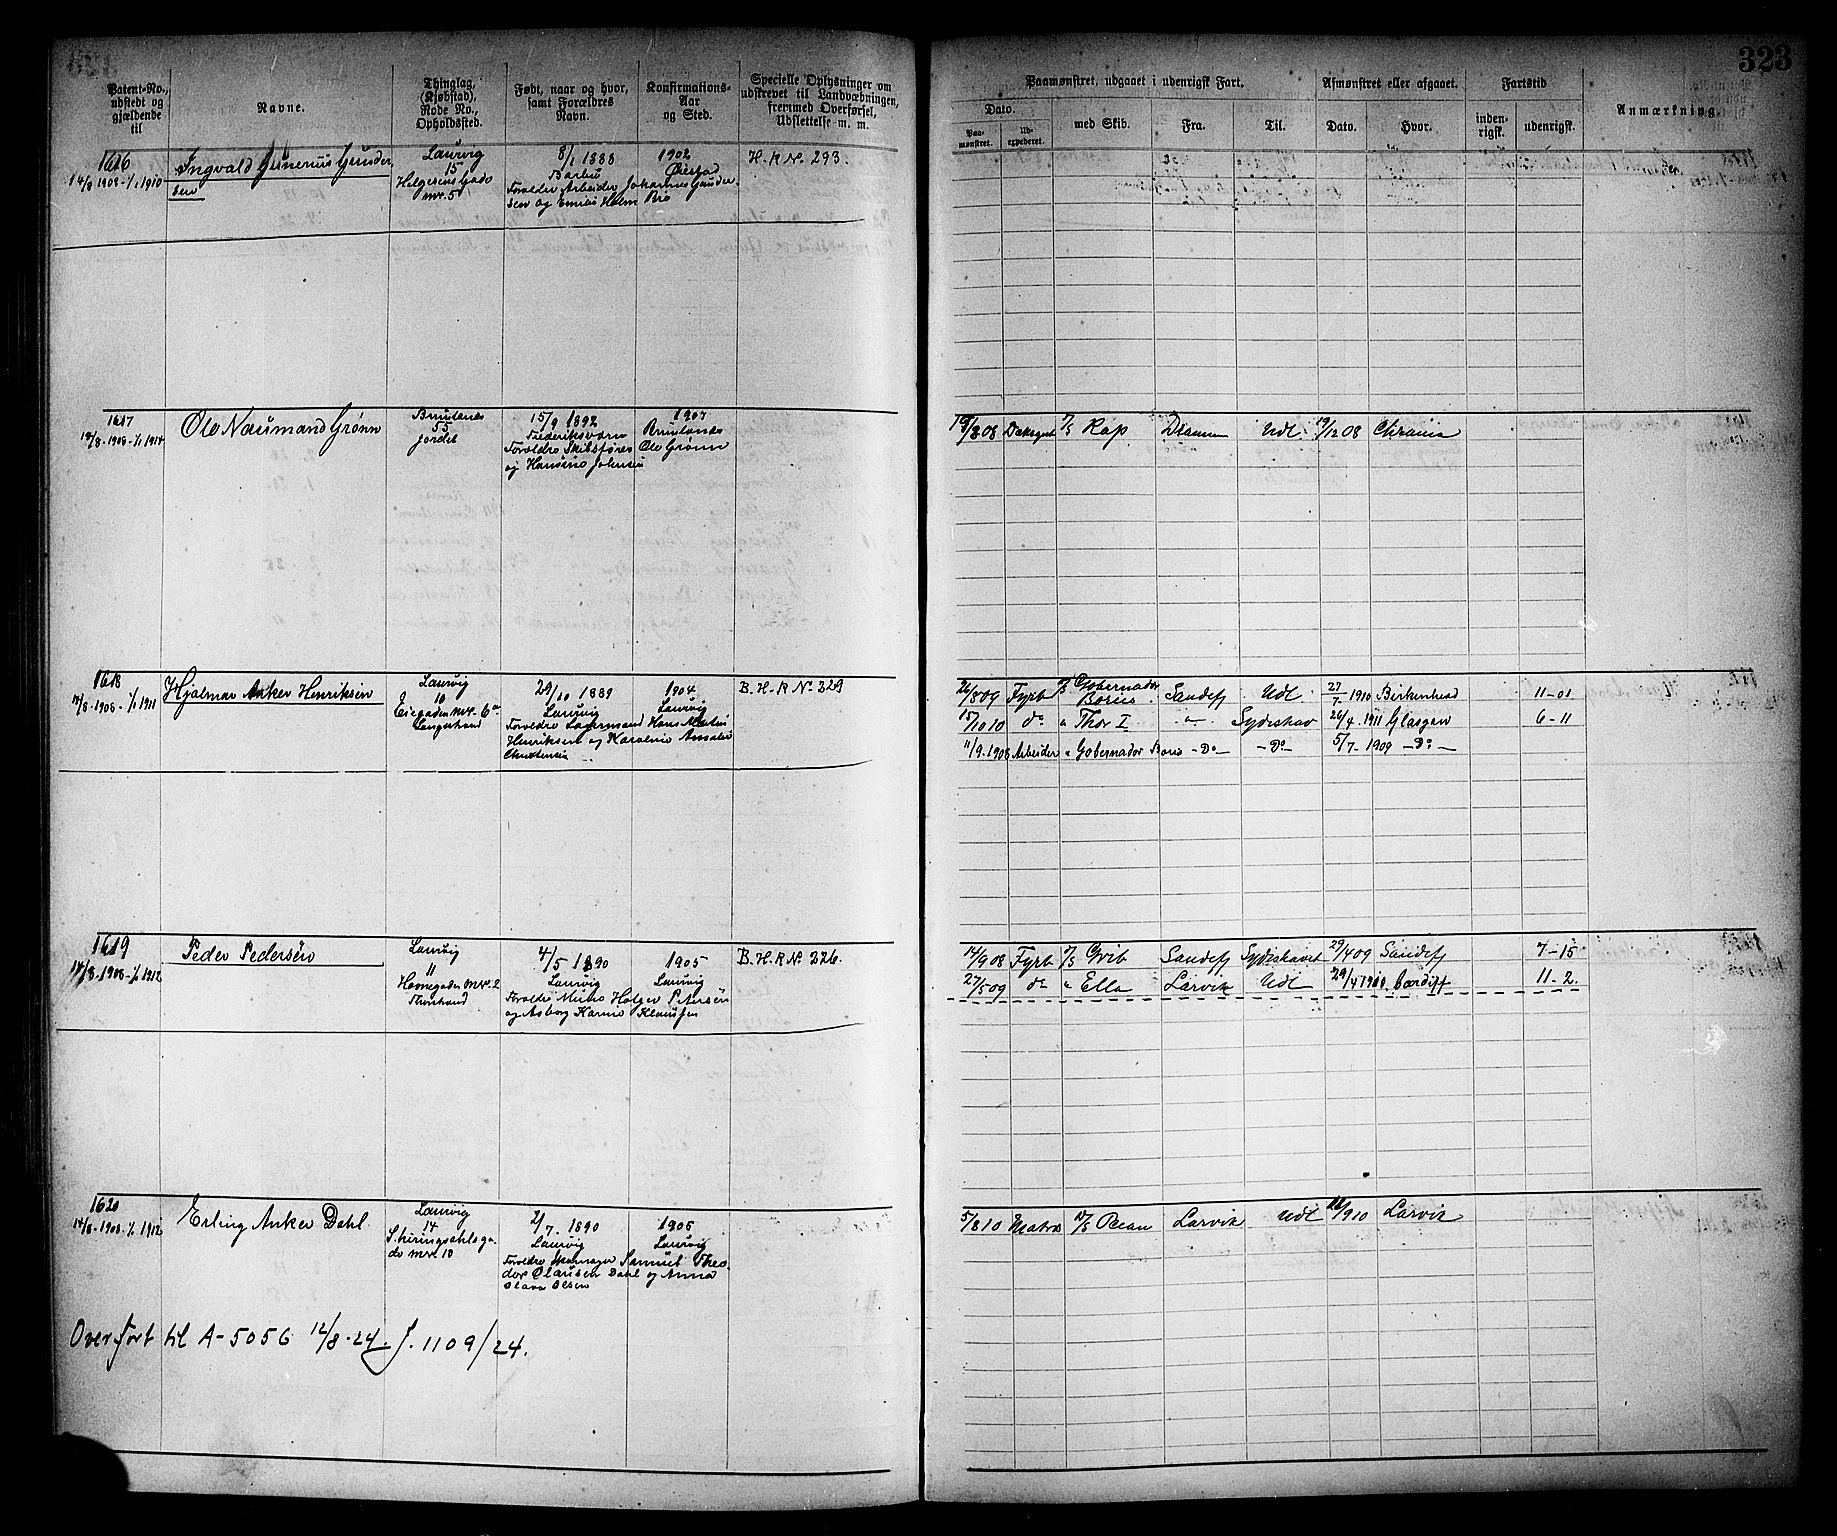 323
Patent-No., udstedt og gjældende til
Navne.
Thinglag, (Kjøbstad), Rode No., Opholdssted.
Født, naar og hvor, samt Forældres Navn.
Konfirmations-Aar og Sted.
Specielle Oplysninger om udskrevet til Landvæbningen, fremmed Overførsel, Udslettelse m. m.
Paamønstret, udgaaet i udenrigsk Fart.
Afmønstret eller afgaaet.
Fartstid
Anmærkning.
Dato.
Paa-mønstret.
Ud-expederet.
med Skib.
Fra.
Til.
Dato.
Hvor.
inden-rigsk.
udenrigsk.
1616
14/8 1908-1/1 1910
Ingvald Gunerius Gunder
sen
Laurvig
15
Helgesens Gade
nr. 5
8/1 1888
Barbu
1902
Øiestad
Forældre Arbeider Johannes Gunder
sen og Emilie Holm Bro
H.R No. 293.
1617
Ole Naumand Grønn
Brunlanes
55
Jordet
15/9 1892
Frederiksværn
1907
Brunlanes
Forældre Skibsfører Ole Grønn
og Hansine Johnsen
19/8 08 Dæksgut D/S Rap. Drammen Udl 19/12 08 Chrania
1618
14/8-1908-1/1 1911
Hjalmar Anker Henriksen
Laurvig
10
Eiegaden nr. 6a
Langestrand
29/10 1889
Laurvig
1904
Laurvig
B.H.R No. 229
Forældre Laurmand Hans Martin
Henriksen og Karoline Amalie
Christensen
21/8 09 Fyrb D/S Gobernador
Bories. Sandefj Udl 27/7 1910 Birkenhead 11-01
15/10 10 do " Thor I " Sydishav 26/4 1911 Glasgow 6-11
11/9 1908 Arbeider " Gobernador Boris -Do- -Do- 5/7 1909 -Do-
1619
14/8-1908-1/1 1912
Peder Pedersen
Laurvig
11
nr. 2
4/5 1890
Laurvig
1905
Laurvig
B.H.R No. 226.
Forældre Murer Holger Petersen
og Asborg Karine Klausen
14/9 08 Fyrb D/S Grib Sandefj Sydishavet 29/4 09 Sandefj 7-15
27/5 09 do " Ella Larvik Udl 29/4 1910 Cardiff 11-2.
1620
14/8-1908-1/1 1912
Erling Anker Dahl.
Laurvig
14
Skiringsahlsga
de nr. 10
2/7 1890
Laurvig
1905
Laurvig
Forældre Skomager Samuel Theo
dor Olausen Dahl og Anna
Olava Olsen
5/8 10 Matros D/S Bean Larvik Udl /9 10 Larvik
Overført til A-5056 12/8-24. J. 1109/24.